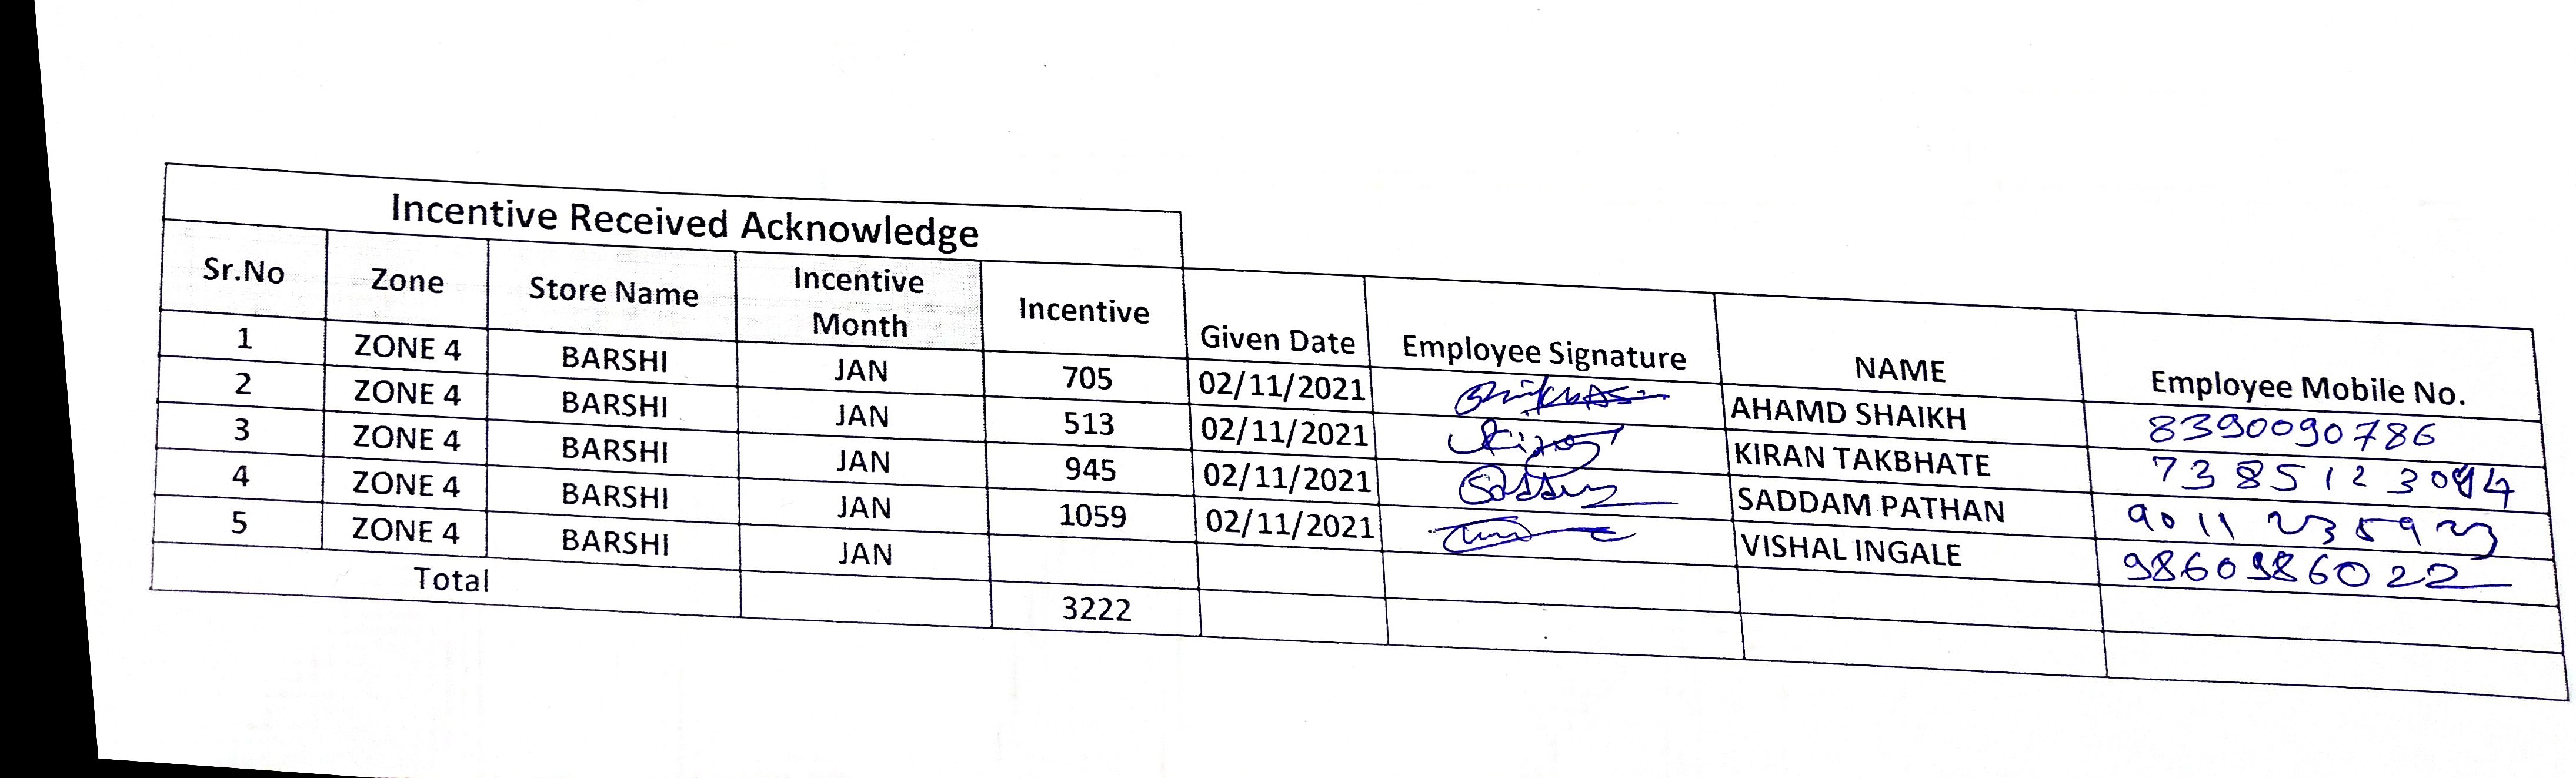 Incentive Received Acknowledge
Sr.No Zone Store Name Incentive Month Incentive Given Date Employee Signature NAME Employee Mobile No.
1 ZONE 4 BARSHI JAN 705 02/11/2021 AHAMD SHAIKH 8390090786
2 ZONE 4 BARSHI JAN 513 02/11/2021 Kiran KIRAN TAKBHATE
3 ZONE 4 BARSHI JAN 945 02/11/2021 Saddam SADDAM PATHAN 9011235923
4 ZONE 4 BARSHI JAN 1059 02/11/2021 VISHAL INGALE 9860986022
5 ZONE 4 BARSHI JAN
Total 3222